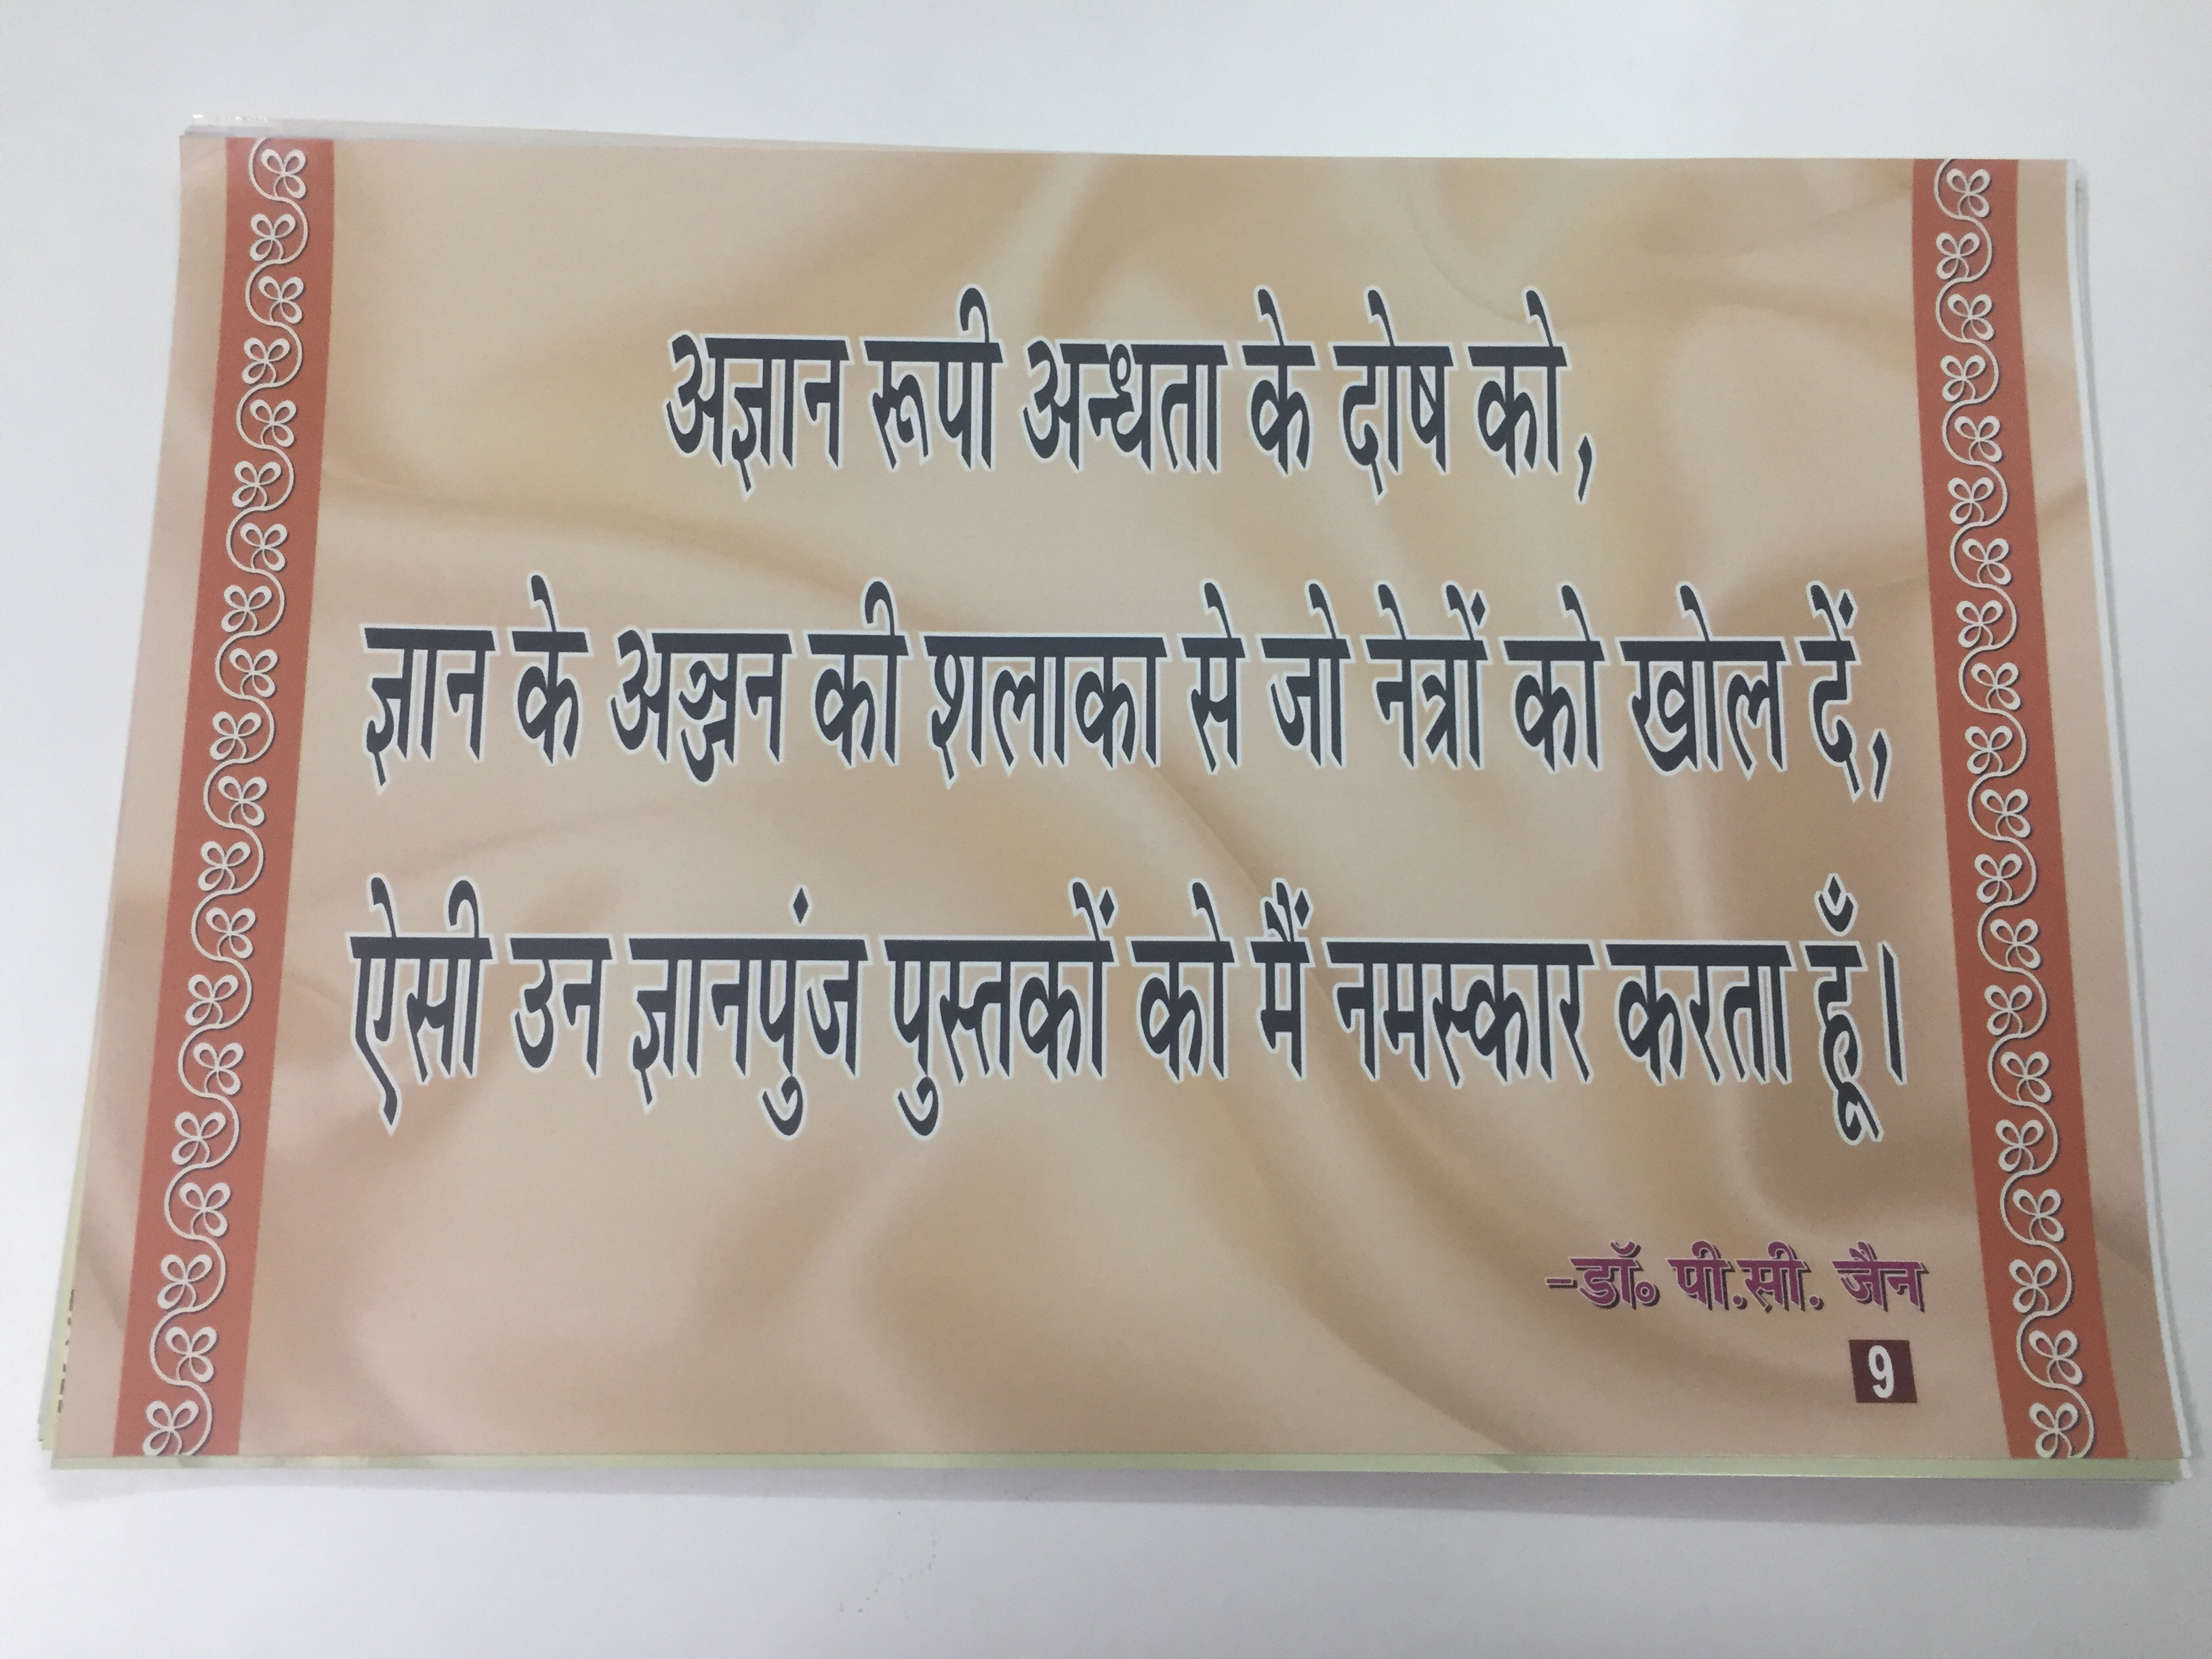 अज्ञान रूपी अन्धता के दोष को,
ज्ञान के अञ्जन की शलाका से जो नेत्रों को खोल दें,
ऐसी उन ज्ञानपुंज पुस्तकों को मैं नमस्कार करता हूँ।
-डॉ० पी.सी. जैन
9